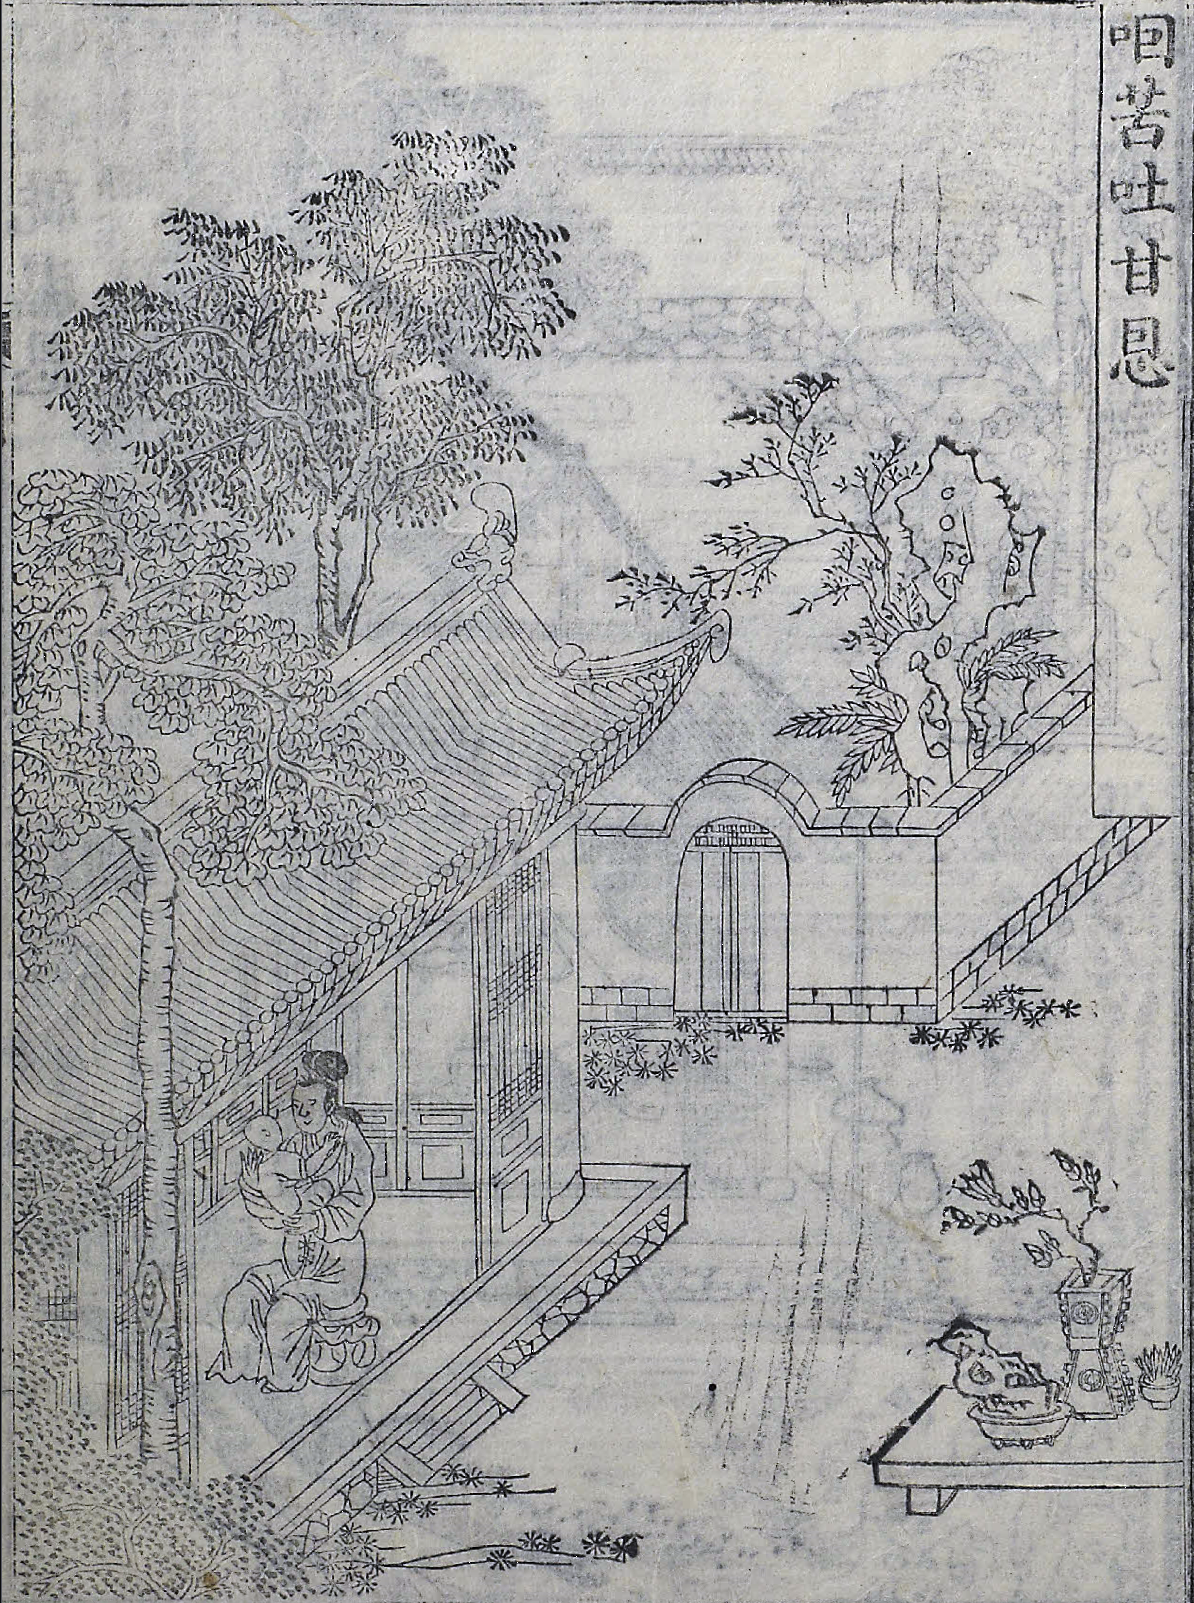 咽苦吐甘恩